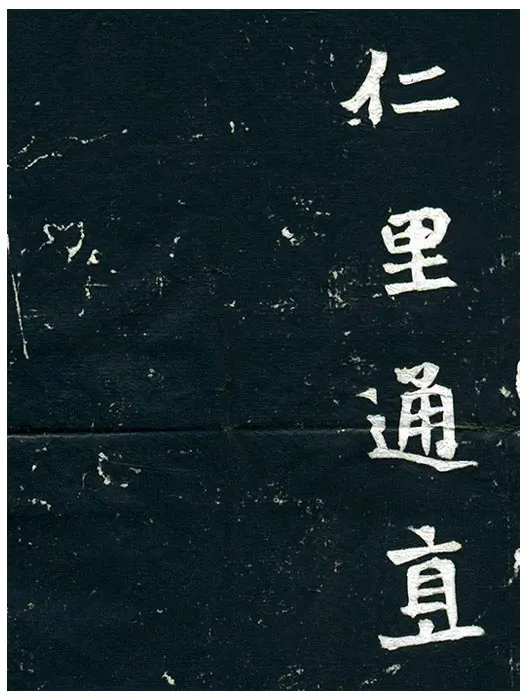 仁里通直